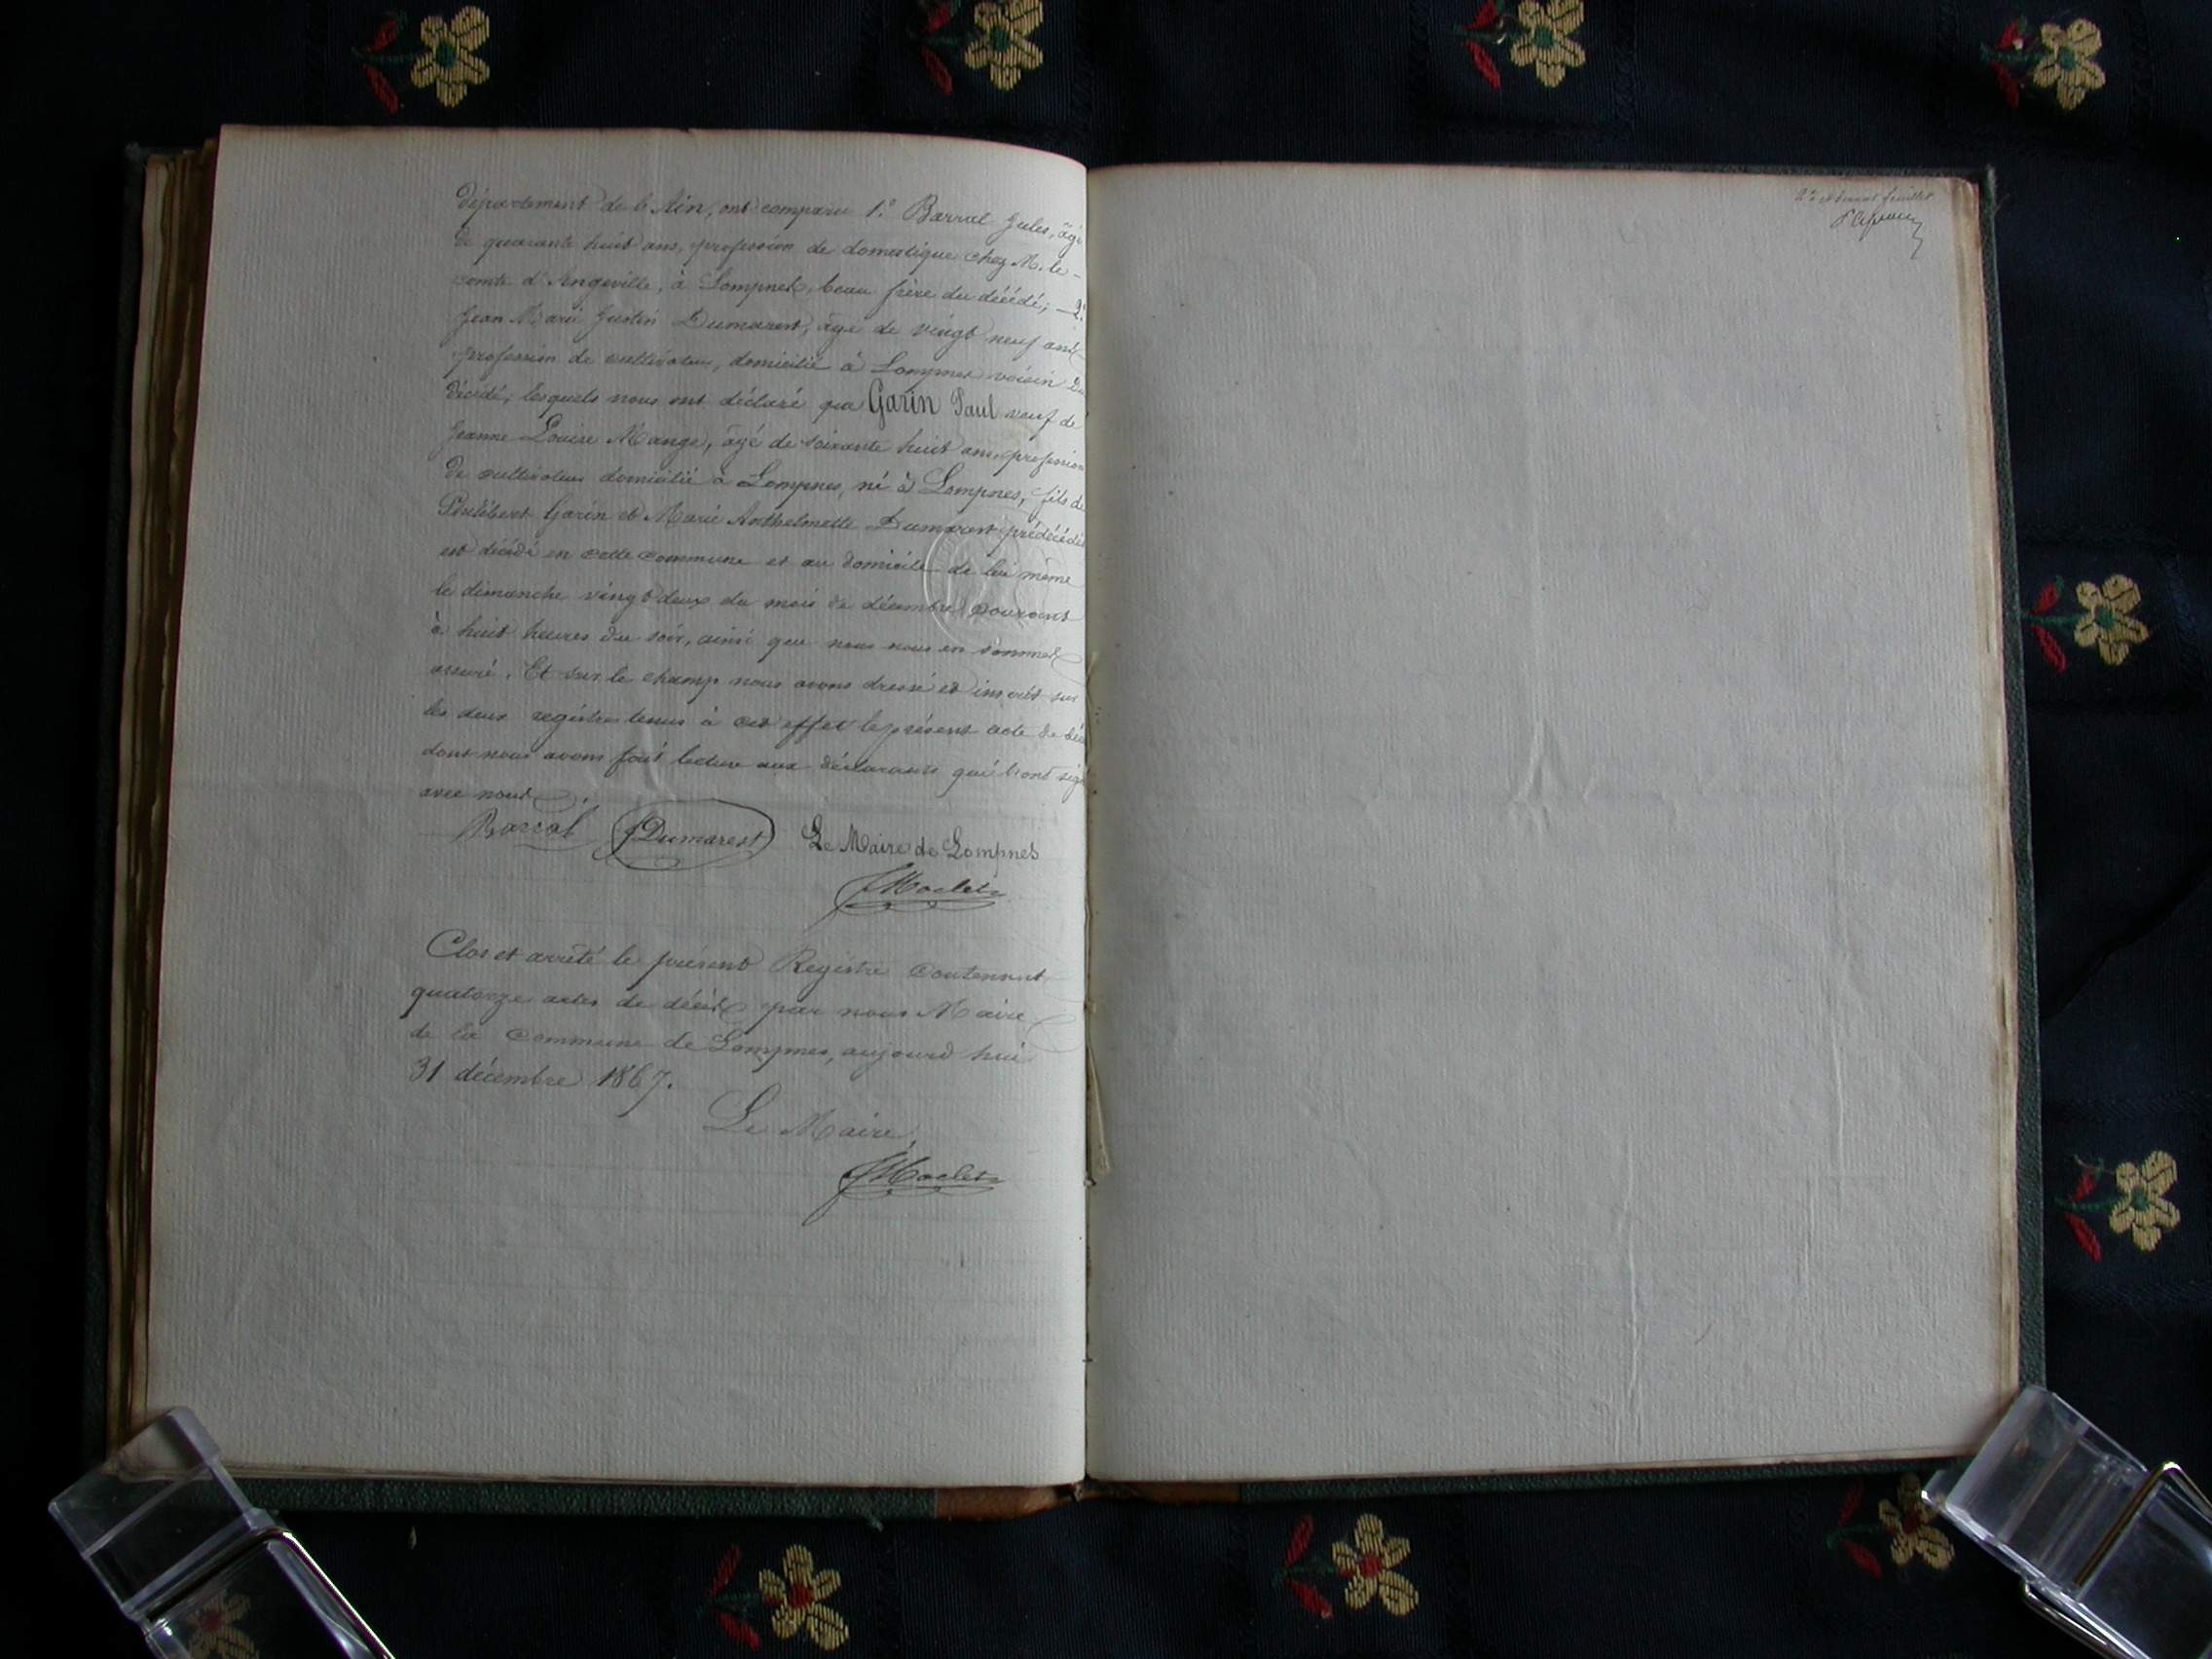 département de l'Ain, ont comparu 1.° Barral Jules, âgé
de quarante huit ans, profession de domestique chez M. le
comte d'Angeville, à Lompnes, beau frère du décédé; 2.°
Jean Marie Justin Dumarest, âgé de vingt neuf ans
profession de cultivateur, domicilié à Lompnes voisin du
décédé; lesquels nous ont déclaré que Garin Paul veuf de
Jeanne Louise Mange, âgé de soixante huit ans, profession
de cultivateur domicilié à Lompnes, né à Lompnes, fils de
Philibert Garin et Marie Anthelmette Dumarest prédécédés
est décédé en cette commune et au domicile de lui même
le dimanche vingt deux du mois de décembre courant
à huit heures du soir, ainsi que nous nous en sommes
assuré. Et sur le champ nous avons dressé et inscrit sur
les deux registres tenus à cet effet le présent acte de décè
dont nous avons fait lecture aux déclarants qui l'ont sig
avec nous.
Barral JDumarest Le Maire de Lompnes
Clos et arrêté le présent Registre contenant
quatorze actes de décès par nous Maire
de la Commune de Lompnes, aujourd hui
31 décembre 1867.
Le Maire,
et dernier feuillet